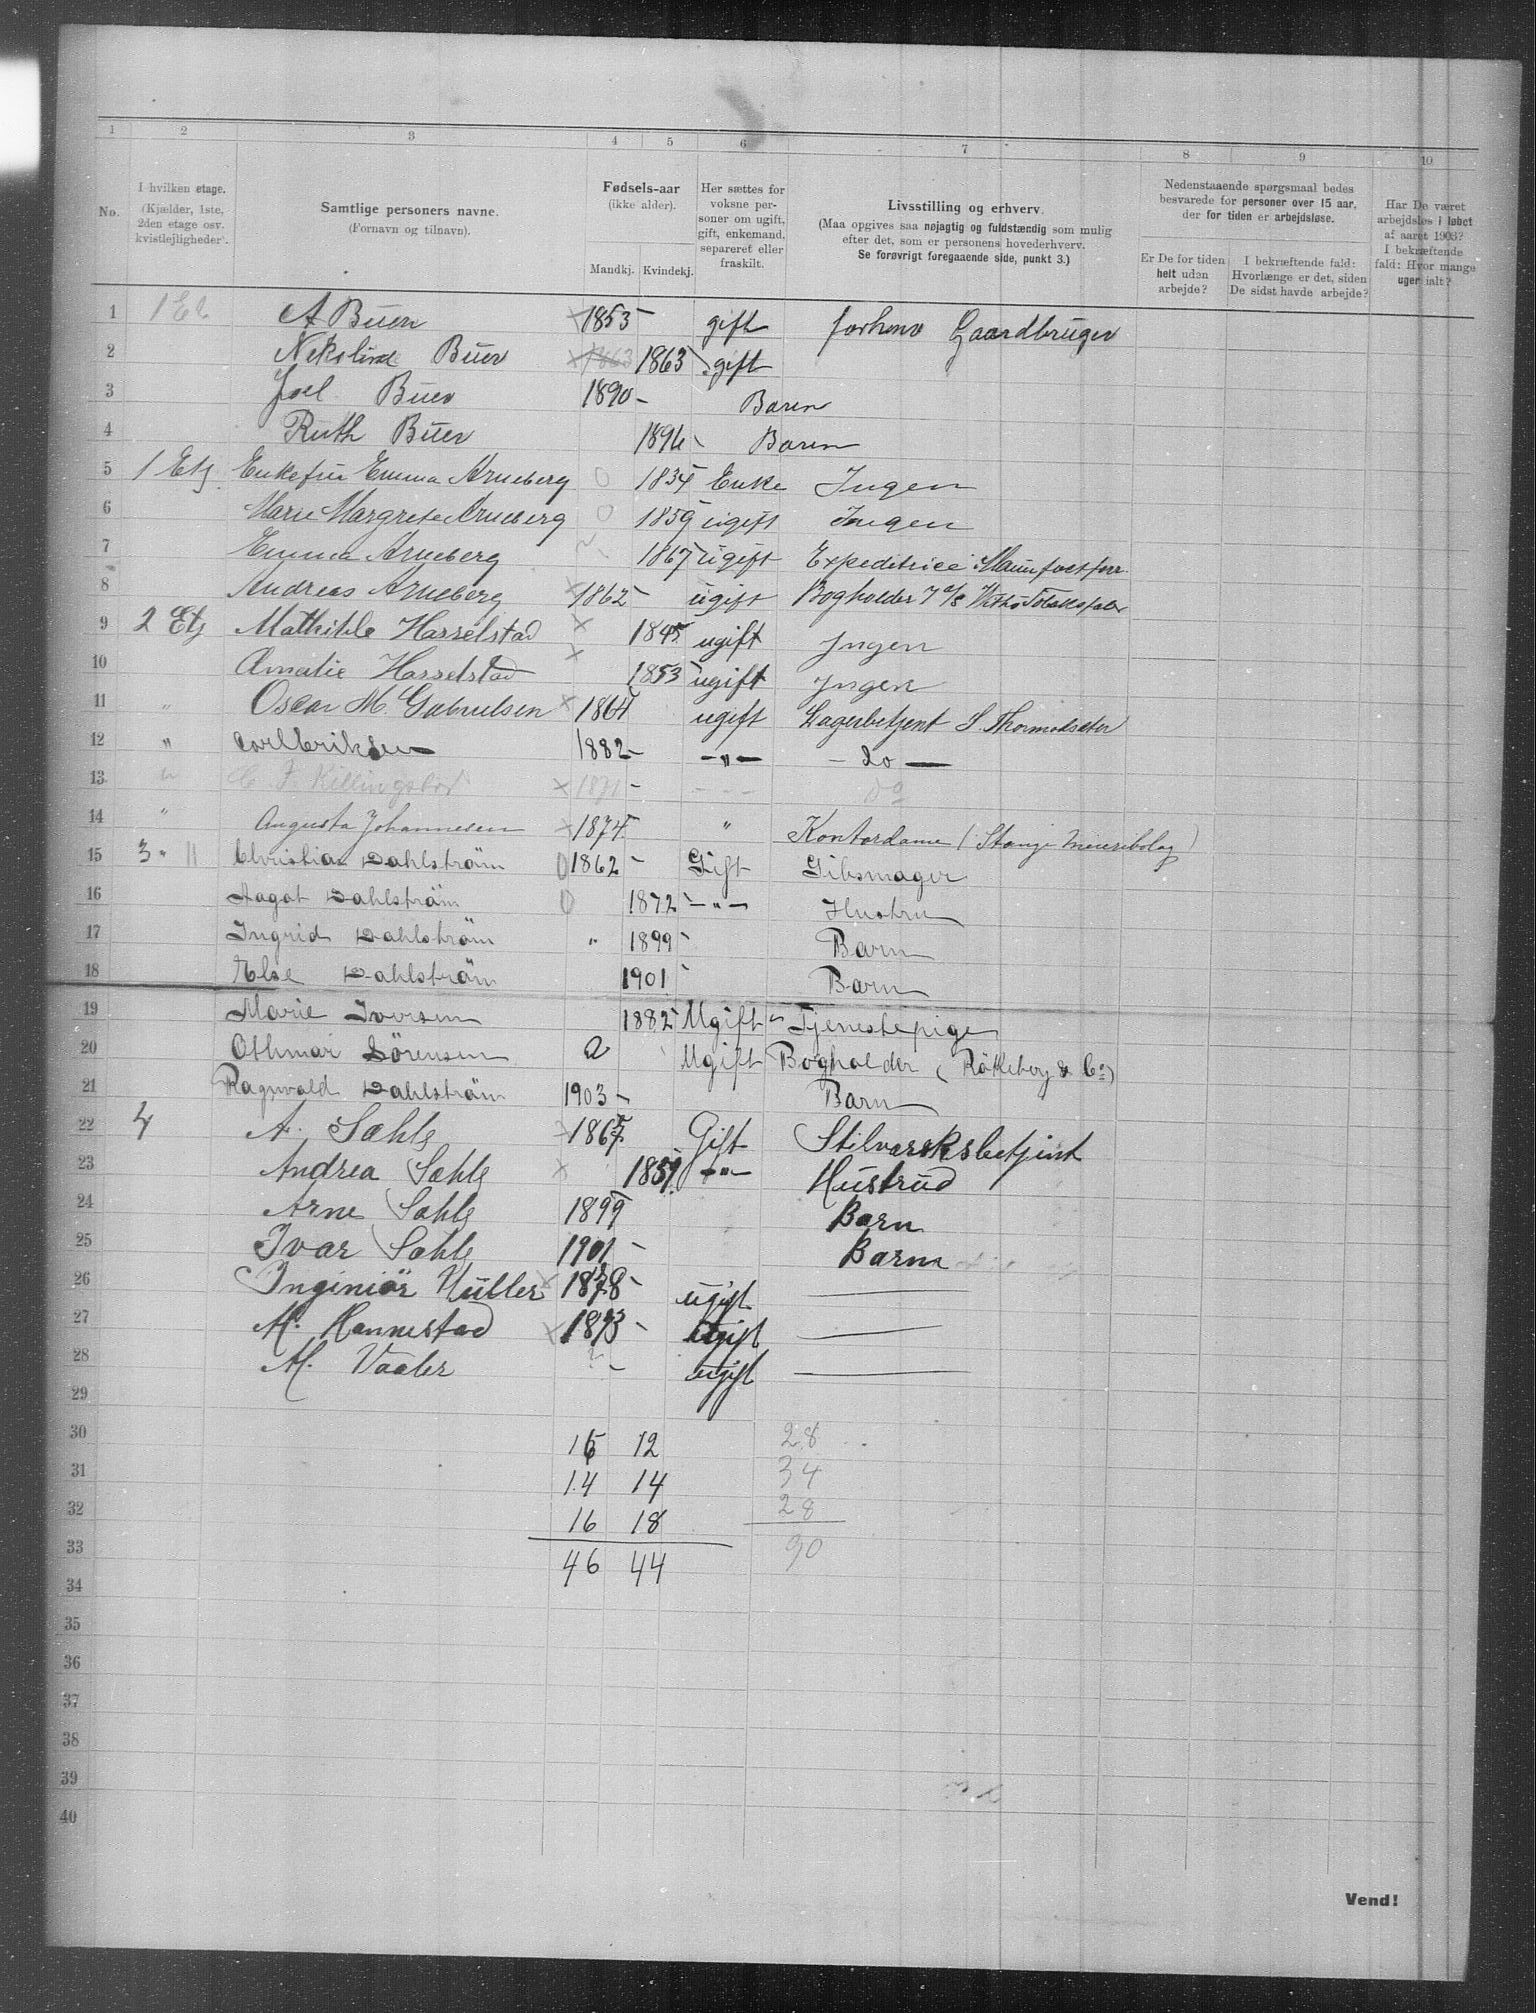 1 2 3 4 5 6 7 8 9 10
No. I hvilken etage. (Kjælder, 1ste, 2den etage osv. kvistlejligheder). Samtlige personers navne. (Fornavn og tilnavn). Fødsels-aar (ikke alder). Mandkj. Kvindekj. Her sættes for voksne personer om ugift, gift, enkemand, separeret eller fraskilt. Livsstilling og erhverv. (Maa opgives saa nøjagtig og fuldstændig som mulig efter det, som er personens hovederhverv. Se forøvrigt foregaaende side, punkt 3.) Nedenstaaende spørgsmaal bedes besvarede for personer over 15 aar, der for tiden er arbejdsløse. Er De for tiden helt uden arbejde? I bekræftende fald: Hvorlænge er det, siden De sidst havde arbejde? Har De været arbejdsløs i løbet af aaret 1903? I bekræftende fald: Hvor mange uger ialt?
1 1 Et A Buer × 1853 gift forhenv Gaardbruger
2 Nekoline Buer × 1863 1863 gift
3 Joel Buer 1890 Baren
4 Ruth Buer 1896 Baren
5 1 Etg. Enkefru Emma Arneberg 0 1834 Enke Ingen
6 Marie Margrete Arneberg 0 1859 ugift Ingen
7 Emma Arneberg 1867 ugift Expeditrice
8 Andreas Arneberg × 1862 ugift Bogholder
9 2 Etg Mathilde Hasselstad × 1845 ugift Ingen
10 Amalie Hasselstad × 1853 ugift Ingen
11 " Oscar M. Gabrielsen × 1864 ugift Lagerbetjent S. Thormodsæter
12 " Carl Eriksen 1882 — " — — Do —
13 " C. F. Killingstad × 1871 - - - Do
14 " Augusta Johannesen × 1874 " Kontordame (Stange Meieribolag)
15 3 " Christian Dahlström 0 1862 Gift Gibsmager
16 Aagot Dahlström 0 1872 — " — Hustru
17 Ingrid Dahlström " 1899 Barn
18 Else Dahlström 1901 Barn
19 Marie Iversen 1882 Ugift Tjenestepige
20 Othmar Sörensen Ugift Bogholder
21 Ragnvald Dahlström 1903 Barn
22 4 A. Sæhle 1867 Gift
23 Andrea Sæhle × 1859 — " — Hustrud
24 Arne Sæhle 1899 Barn
25 Ivar Sæhle 1901 Barn
26 Inginiör Müller × 1878 ugift —
27 M. Hannestad × 1873 ugift —
28 M. Vaaler ? ugift —
29
30 15 12 28
31 14 14 34
32 16 18 28
33 46 44 90
34
35
36
37
38
39
40
Vend!